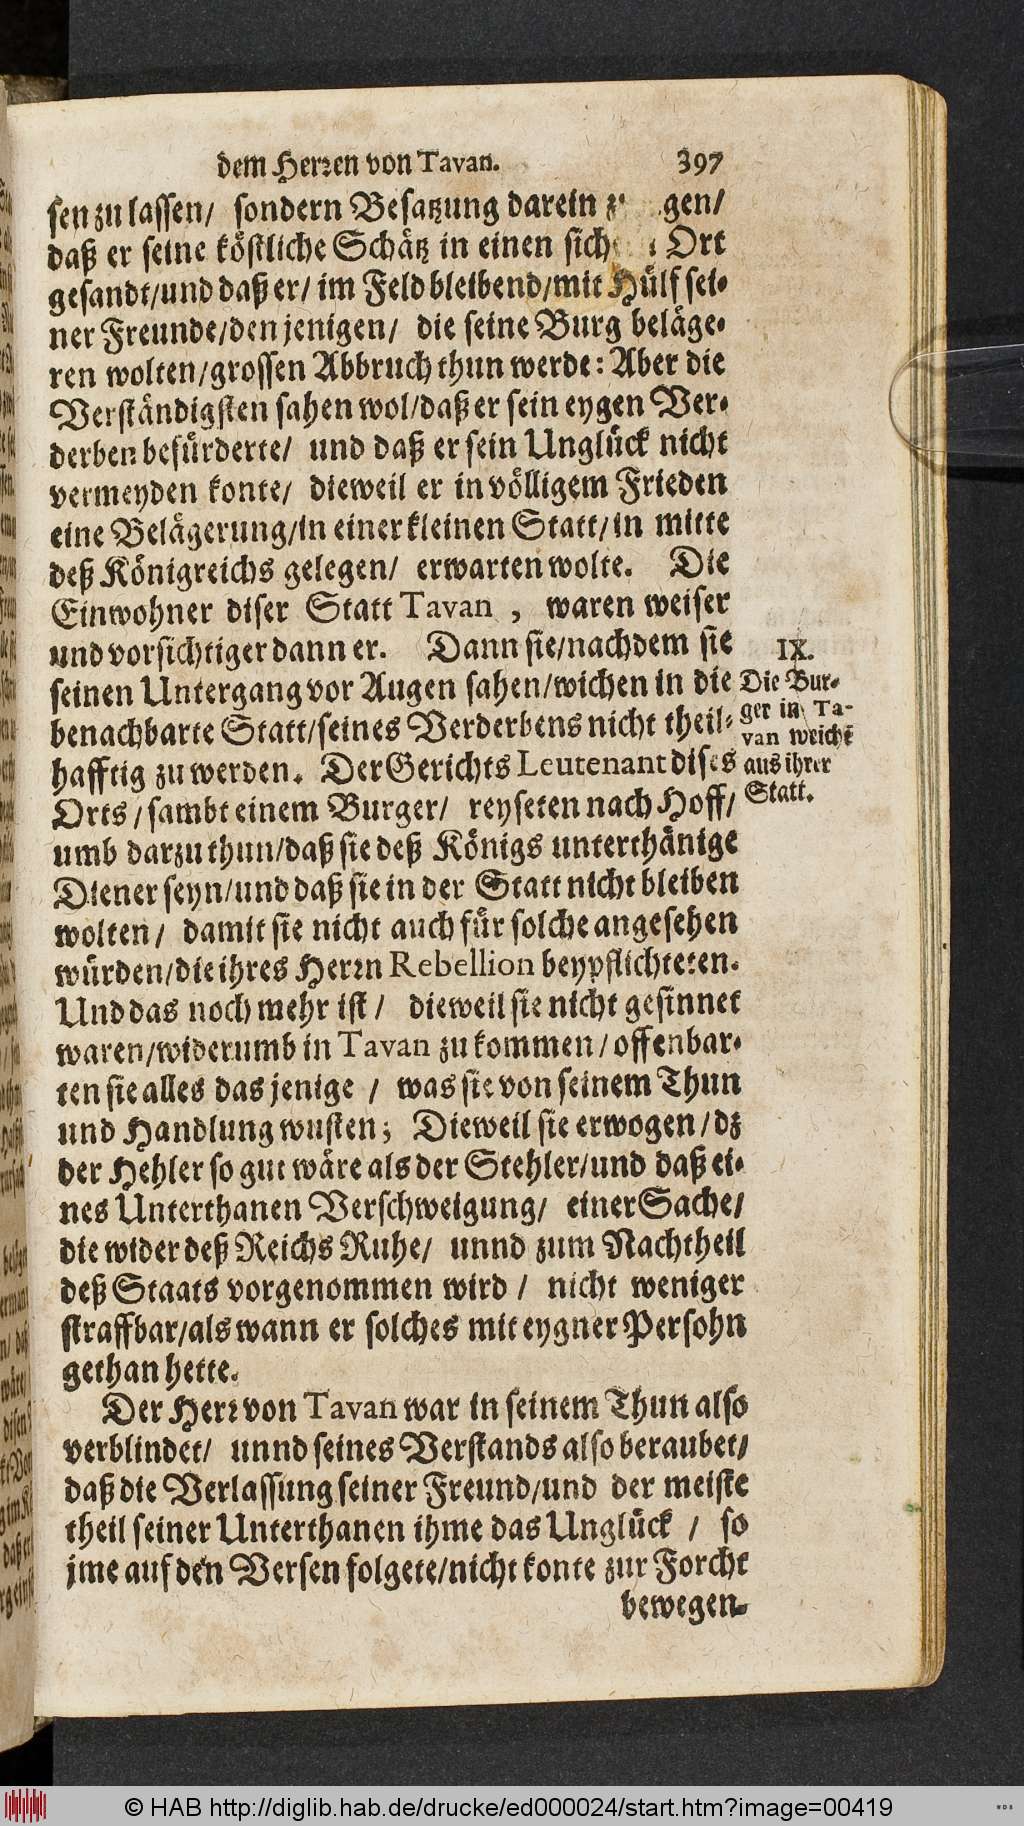 dem Herꝛen von Tavan. 397
sen zu lassen/ sondern Besatzung darein gen/
daß er seine köstliche Schätz in einen Ort
gesandt/und daß er/ im Feld bleibend/mit Hülf sei-
ner Freunde/den jenigen/ die seine Burg beläge-
ren wolten/grossen Abbruch thun werde: Aber die
Verständigsten sahen wol/daß er sein eygen Ver-
derben befürderte/ und daß er sein Unglück nicht
vermeyden konte/ dieweil er in völligem Frieden
eine Belägerung/in einer kleinen Statt/in mitte
deß Königreichs gelegen/ erwarten wolte. Die
Einwohner diser Statt Tavan, waren weiser
und vorsichtiger dann er. Dann sie/nachdem sie
seinen Untergang vor Augen sahen/wichen in die
benachbarte Statt/seines Verderbens nicht theil-
hafftig zu werden. Der Gerichts Leutenant dises
Orts/sambt einem Burger/ reyseten nach Hoff/
umb darzuthun/daß sie deß Königs unterthänige
Diener seyn/und daß sie in der Statt nicht bleiben
wolten/ damit sie nicht auch für solche angesehen
würden/die ihres Herꝛn Rebellion beypflichteten.
Und das noch mehr ist/ dieweil sie nicht gesinnet
waren/widerumb in Tavan zu kommen/offenbar-
ten sie alles das jenige/ was sie von seinem Thun
und Handlung wusten; Dieweil sie erwogen/dz
der Hehler so gut wäre als der Stehler/und daß ei-
nes Unterthanen Verschweigung/ einer Sache/
die wider deß Reichs Ruhe/ unnd zum Nachtheil
deß Staats vorgenommen wird/ nicht weniger
straffbar/als wann er solches mit eygner Persohn
gethan hette.
Der Herꝛ von Tavan war in seinem Thun also
verblindet/ unnd seines Verstands also beraubet/
daß die Verlassung seiner Freund/und der meiste
theil seiner Unterthanen ihme das Unglück/ so
jme auf den Versen folgete/nicht konte zur Forcht
bewegen.
IX.
Die Bur-
ger in Ta-
van weichẽ
aus ihrer
Statt.
© HAB http://diglib.hab.de/drucke/ed000024/start.htm?image=00419